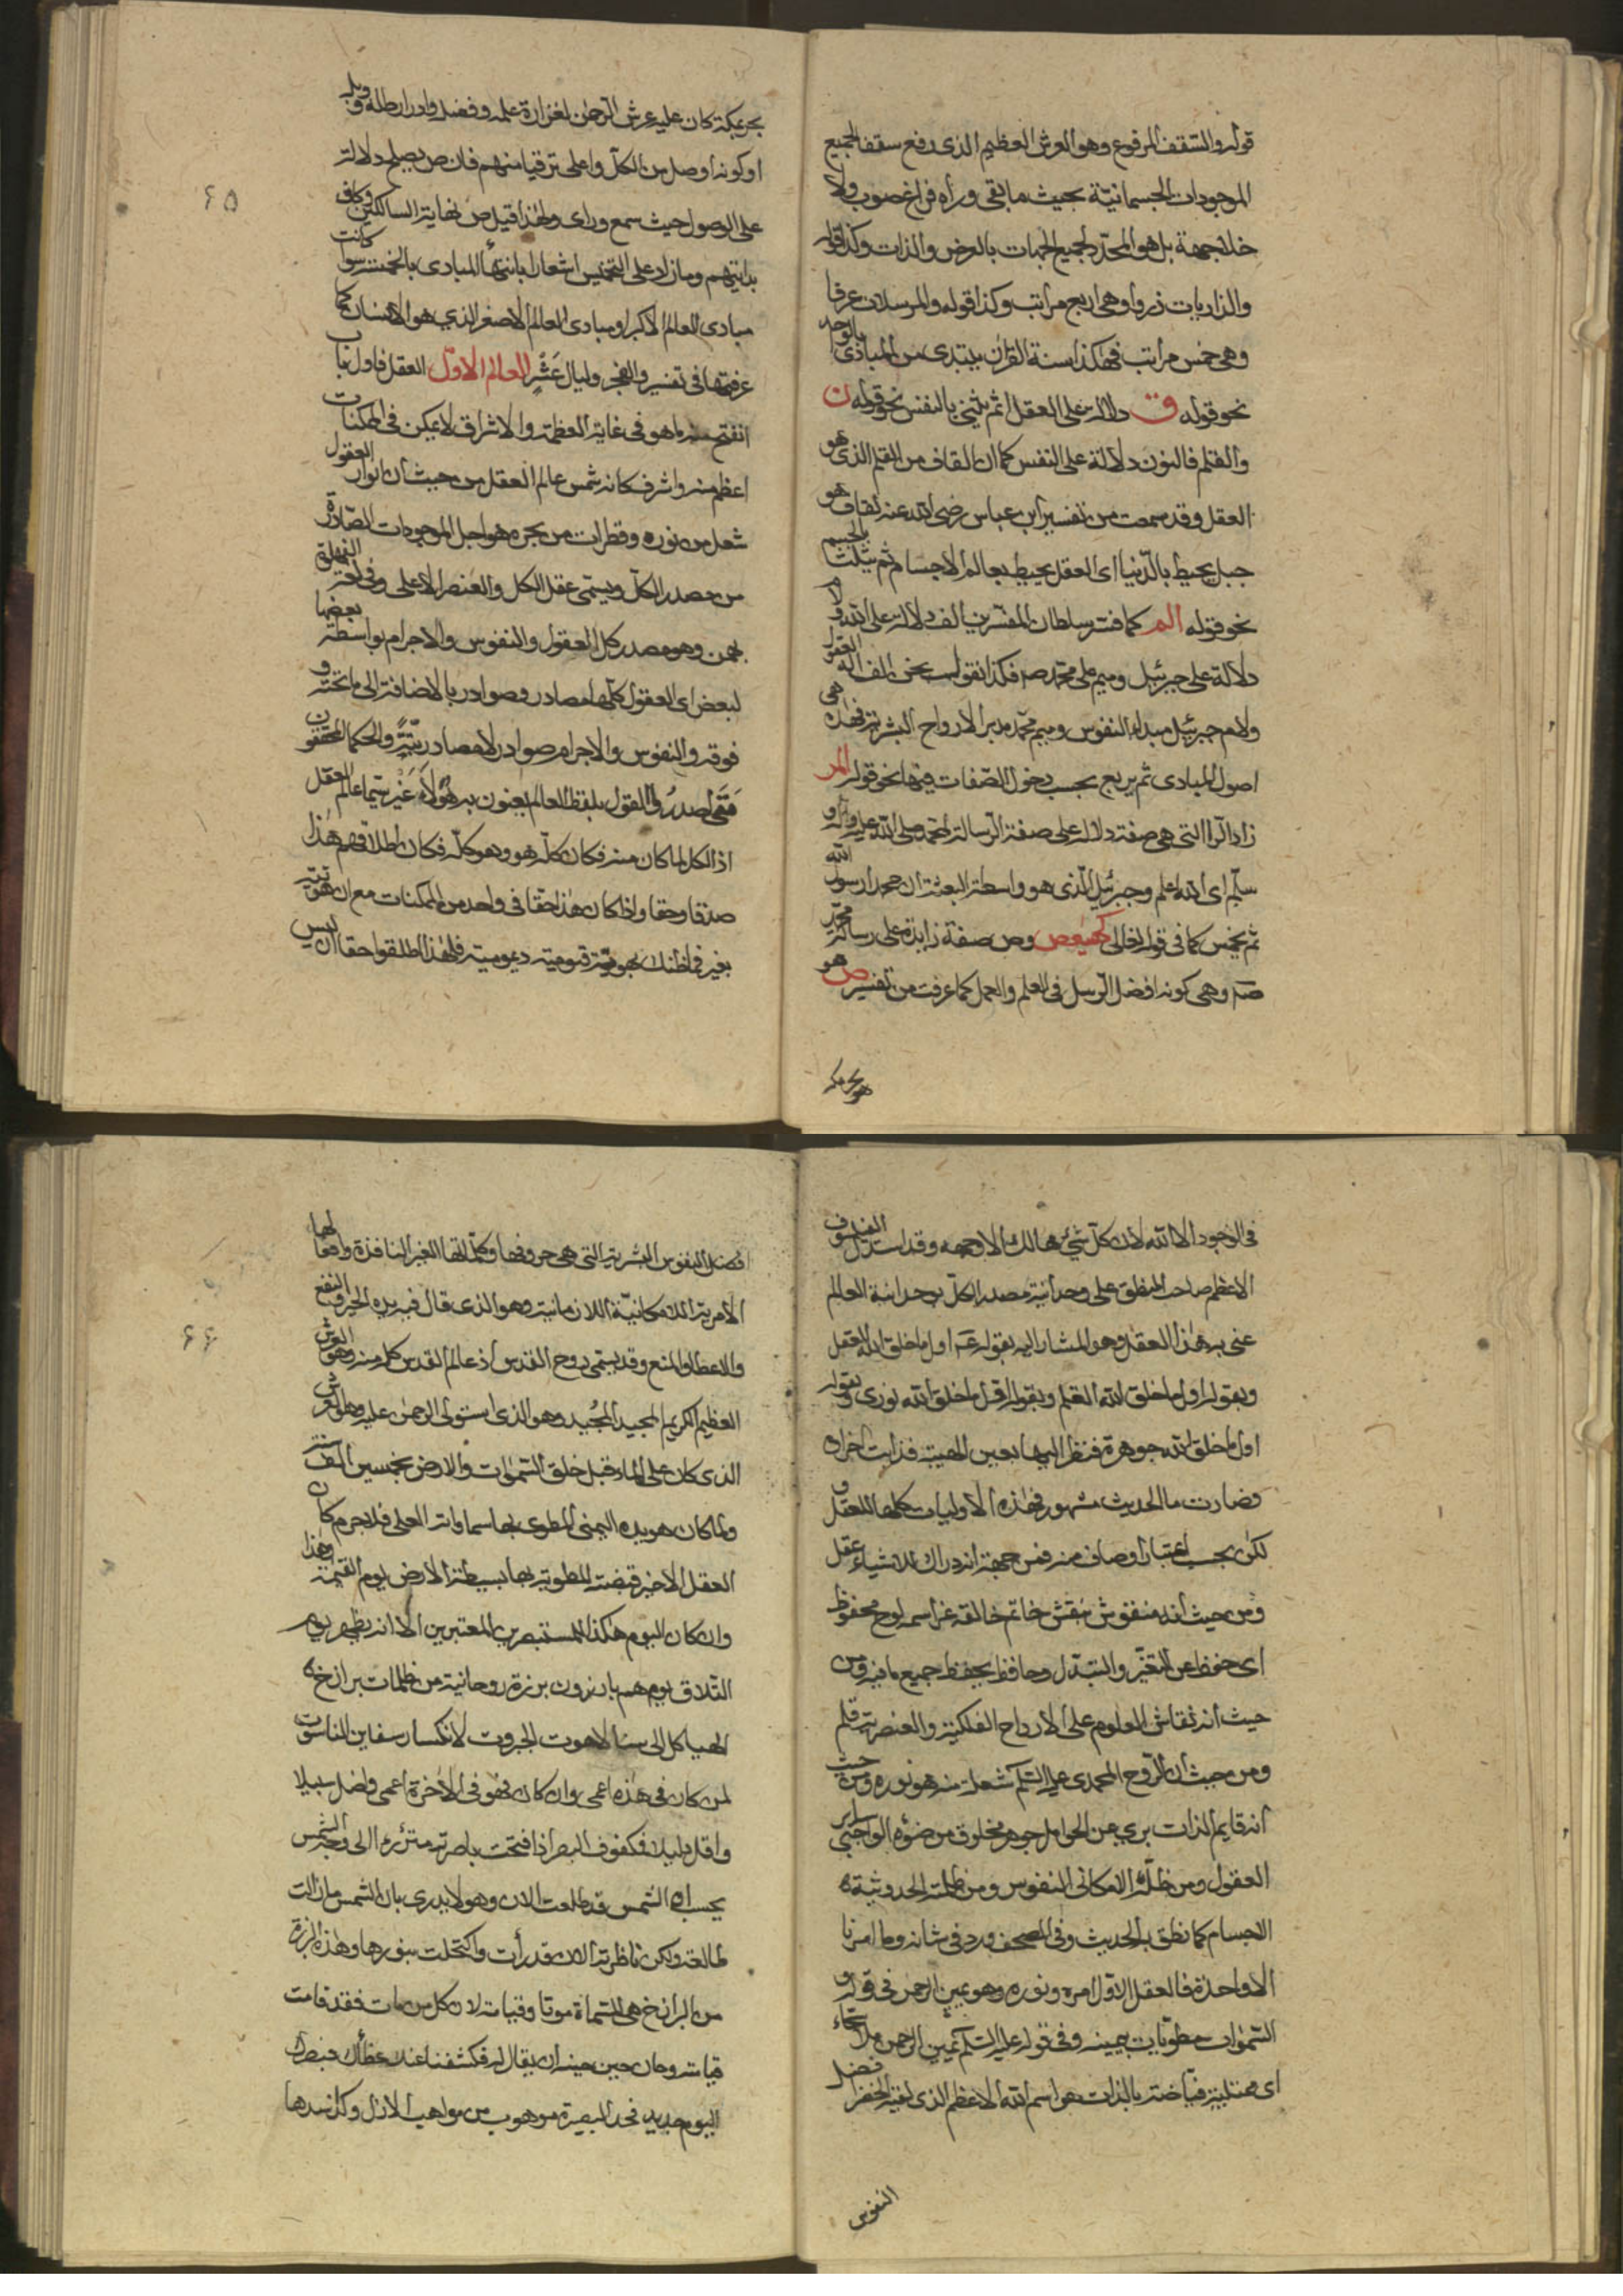 قوله والسقف المرفوع وهو العرش العظيم الذى رفع سقف الجميع
الموجودات الجسمانيّة بحيث ما بقى وراه فراغ صوب ولا
خلا جهة بل هو المحدّد لجميع الجهات بالعرض والذات وكذا قوله
والذاريات ذروا وهى اربع مراتب وكذا قوله والمرسلات عرفا
وهى خمس مراتب فهكذا سنة القرآن يبتدى من المبادى بالواحد
نحو قوله ق دلالة على العقل ثم يثنى بالنفس نحو قوله ن
والقلم فالنون دلالة على النفس كما ان القاف من القلم الذى هو
العقل وقد سمعت من تفسير ابن عباس رضى الله عنه القاف هو
جبل يحيط بالدّنيا اى العقل يحيط بعالم الاجسام ثم يثلث بالجسم
نحو قوله الم كما فسر سلطان المفسّرين الف دلالة على الله ولام
دلالة على جبرئيل وميم على محمد صم فكذا نقول نحن الف اله العقول
ولام جبرئيل مبداء النفوس وميم محمد مدبر الارواح البشرية فهذه هى
اصول المبادى ثم يربع بحسب دخول الصفات فيها نحو قوله المر
زاد الرا التى هى صفة دلالة على صفة الرسالة لمحمد صلى الله عليه واله و
سلم اى الله اعلم وجبرئيل الذى هو واسطة البعثة ان محمدا رسول الله
ثم يخمس كما فى قوله تعالى كهيعص وص صفة زايدة على رسالة محمد
صم وهى كونه افضل الرسل فى العلم والعمل كما عرفت من تفسير ص هو
هو بحر بمكة
۶۵
بحر بمكة كان عليه عرش الرحمن لغزارة علمه وفضله وادرار طله و وبله
او كونه اوصل من الكلّ واعلى ترقيا منهم فان ص يصلح دلالة
على الوصول حيث سمع وراى ولهذا قيل ص نهاية السالكين وكاف
بدايتهم وما زاد على التخميس اشعارا بانتهاء المبادى بالخمسة سوا كانت
مبادى العالم الاكبر او مبادى العالم الاصغر الذى هو الانسان كما
عرفتها فى تفسير والفجر وليال عشر العالم الاول العقل فاول باب
انفتح منه ما هو فى غاية العظمة والاشراق لا يمكن فى الممكنات
اعظم منه واشرف كانه شمس عالم العقل من حيث ان انوار العقول
شعل من نوره وقطرات من بحره هو اجل الموجودات الصّادرة
من مصدر الكلّ ويسمّى عقل الكل والعنصر الاعلى وفى لغة الفهلوية
بهمن وهو مصدر كل العقول والنفوس والاجرام بواسطة بعضها
لبعض اى العقول كلّها مصادر وصوادر بالاضافة الى ما تحته و
فوقه والنفوس والاجرام صوادر لا مصادر بتّة والحكما المحققون
متى اصدروا القول بلفظ العالم يعنون به هؤلاء غير سيّما عالم العقل
اذ الكل لما كان منه فكان كله هو وهو كلّه فكان اطلاقهم هذا
صدقا وحقا واذا كان هذا حقا فى واحد من الممكنات مع ان هويّته
بغيره فما ظنك بهويّة قيومية ديمومية فلهذا اطلقوا حقا ان ليس
فى الوجود الا الله لان كلّ شئ هالك الا وجهه وقد استدل الفيلسوف
الاعظم صاحب المنطق على وحدانية مصدر الكلّ بوحدانية العالم
عنى به هذا العقل وهو المشار اليه بقوله عم اول ما خلق الله العقل
وبقوله اول ما خلق الله القلم وبقوله اول ما خلق الله نورى وبقوله
اول ما خلق الله جوهرة فنظر اليها بعين الهيبة فذابت اجزاه
فصارت ما الحديث مشهور فهذه الاوليات كلها للعقل و
لكن بحسب اعتبار اوصاف منه فمن جهة انه دراك للاشياء عقل
ومن حيث انه منقوش بنقش خاتم خالقه عز اسمه لوح محفوظ
اى حفظ عن التغيّر والتبدّل وحافظ يحفظ جميع ما فيه ومن
حيث انه نقاش العلوم على الارواح الفلكية والعنصرية قلم
ومن حيث ان الروح المحمدى عليه السّلم شعلة منه هو نوره ومن حيث
انه قايم الذات برى عن الحوامل جوهر مخلوق من ضوئه الواجبى ساير
العقول ومن ظلّه الامكانى النفوس ومن ظلمته الحدوثية
الاجسام كما نطق به الحديث وفى المصحف ورد فى شانه وما امرنا
الا واحدة فالعقل الاول امره ونوره وهو يمين الرحمن فى قوله و
السّموات مطويّات بيمينه وفى قوله عليه السّلم يمين الرحمن ملآ سحّاء
اى ممتلية فياضة بالذات هو اسم الله الاعظم الذى لفيته الخضرا فضل
النفوس
۶۶
فضل النفوس البشرية التى هى حروفها وكلماتها الغير النافذة وافعالها
الامرية اللا مكانيّة اللا زمانية وهو الذى قال فبيده الخير والنفع
والاعطا والمنع وقد يسمّى روح القدس اذ عالم القدس كله منه وهو العرش
العظيم الكريم المجيد المجيد وهو الذى استولى الرحمن عليه وهو العرش
الذى كان على الماء قبل خلق السّموات والارض بخمسين الف سنة
ولما كان هو يده اليمنى المطوى بها سماواته العلى فلا جرم كان
العقل الاخير قبضته المطوية بها بسيطة الارض يوم القيمة وهذا
وان كان اليوم هكذا للمستبصرين المعتبرين الا انه يظهر يوم
التلاق يوم هم بارزون برزة روحانية من ظلمات برازخ
الهياكل الى سنا لاهوت الجبروت لانكسار سفاين الناسوت
لمن كان فى هذه اعمى وان كان فهو فى الاخرة اعمى واضل سبيلا
واقل دليلا فمكفوف البصر اذا فتحت باصرته الى وجه الشمس
يحسب ان الشمس قد طلعت الان وهو لا يدرى بان الشمس ما زالت
طالعة ولكن ناظرته الان قد رأت واكتحلت بنورها وهذه البرزة
من البرازخ هى المسماة موتا وقيامة لان كل من مات فقد قامت
قيامته وحان حين حينه ان يقال له فكشفنا عنك غطاءك فبصرك
اليوم حديد فحد البصيرة موهوب من مواهب الازل وكذا سدها